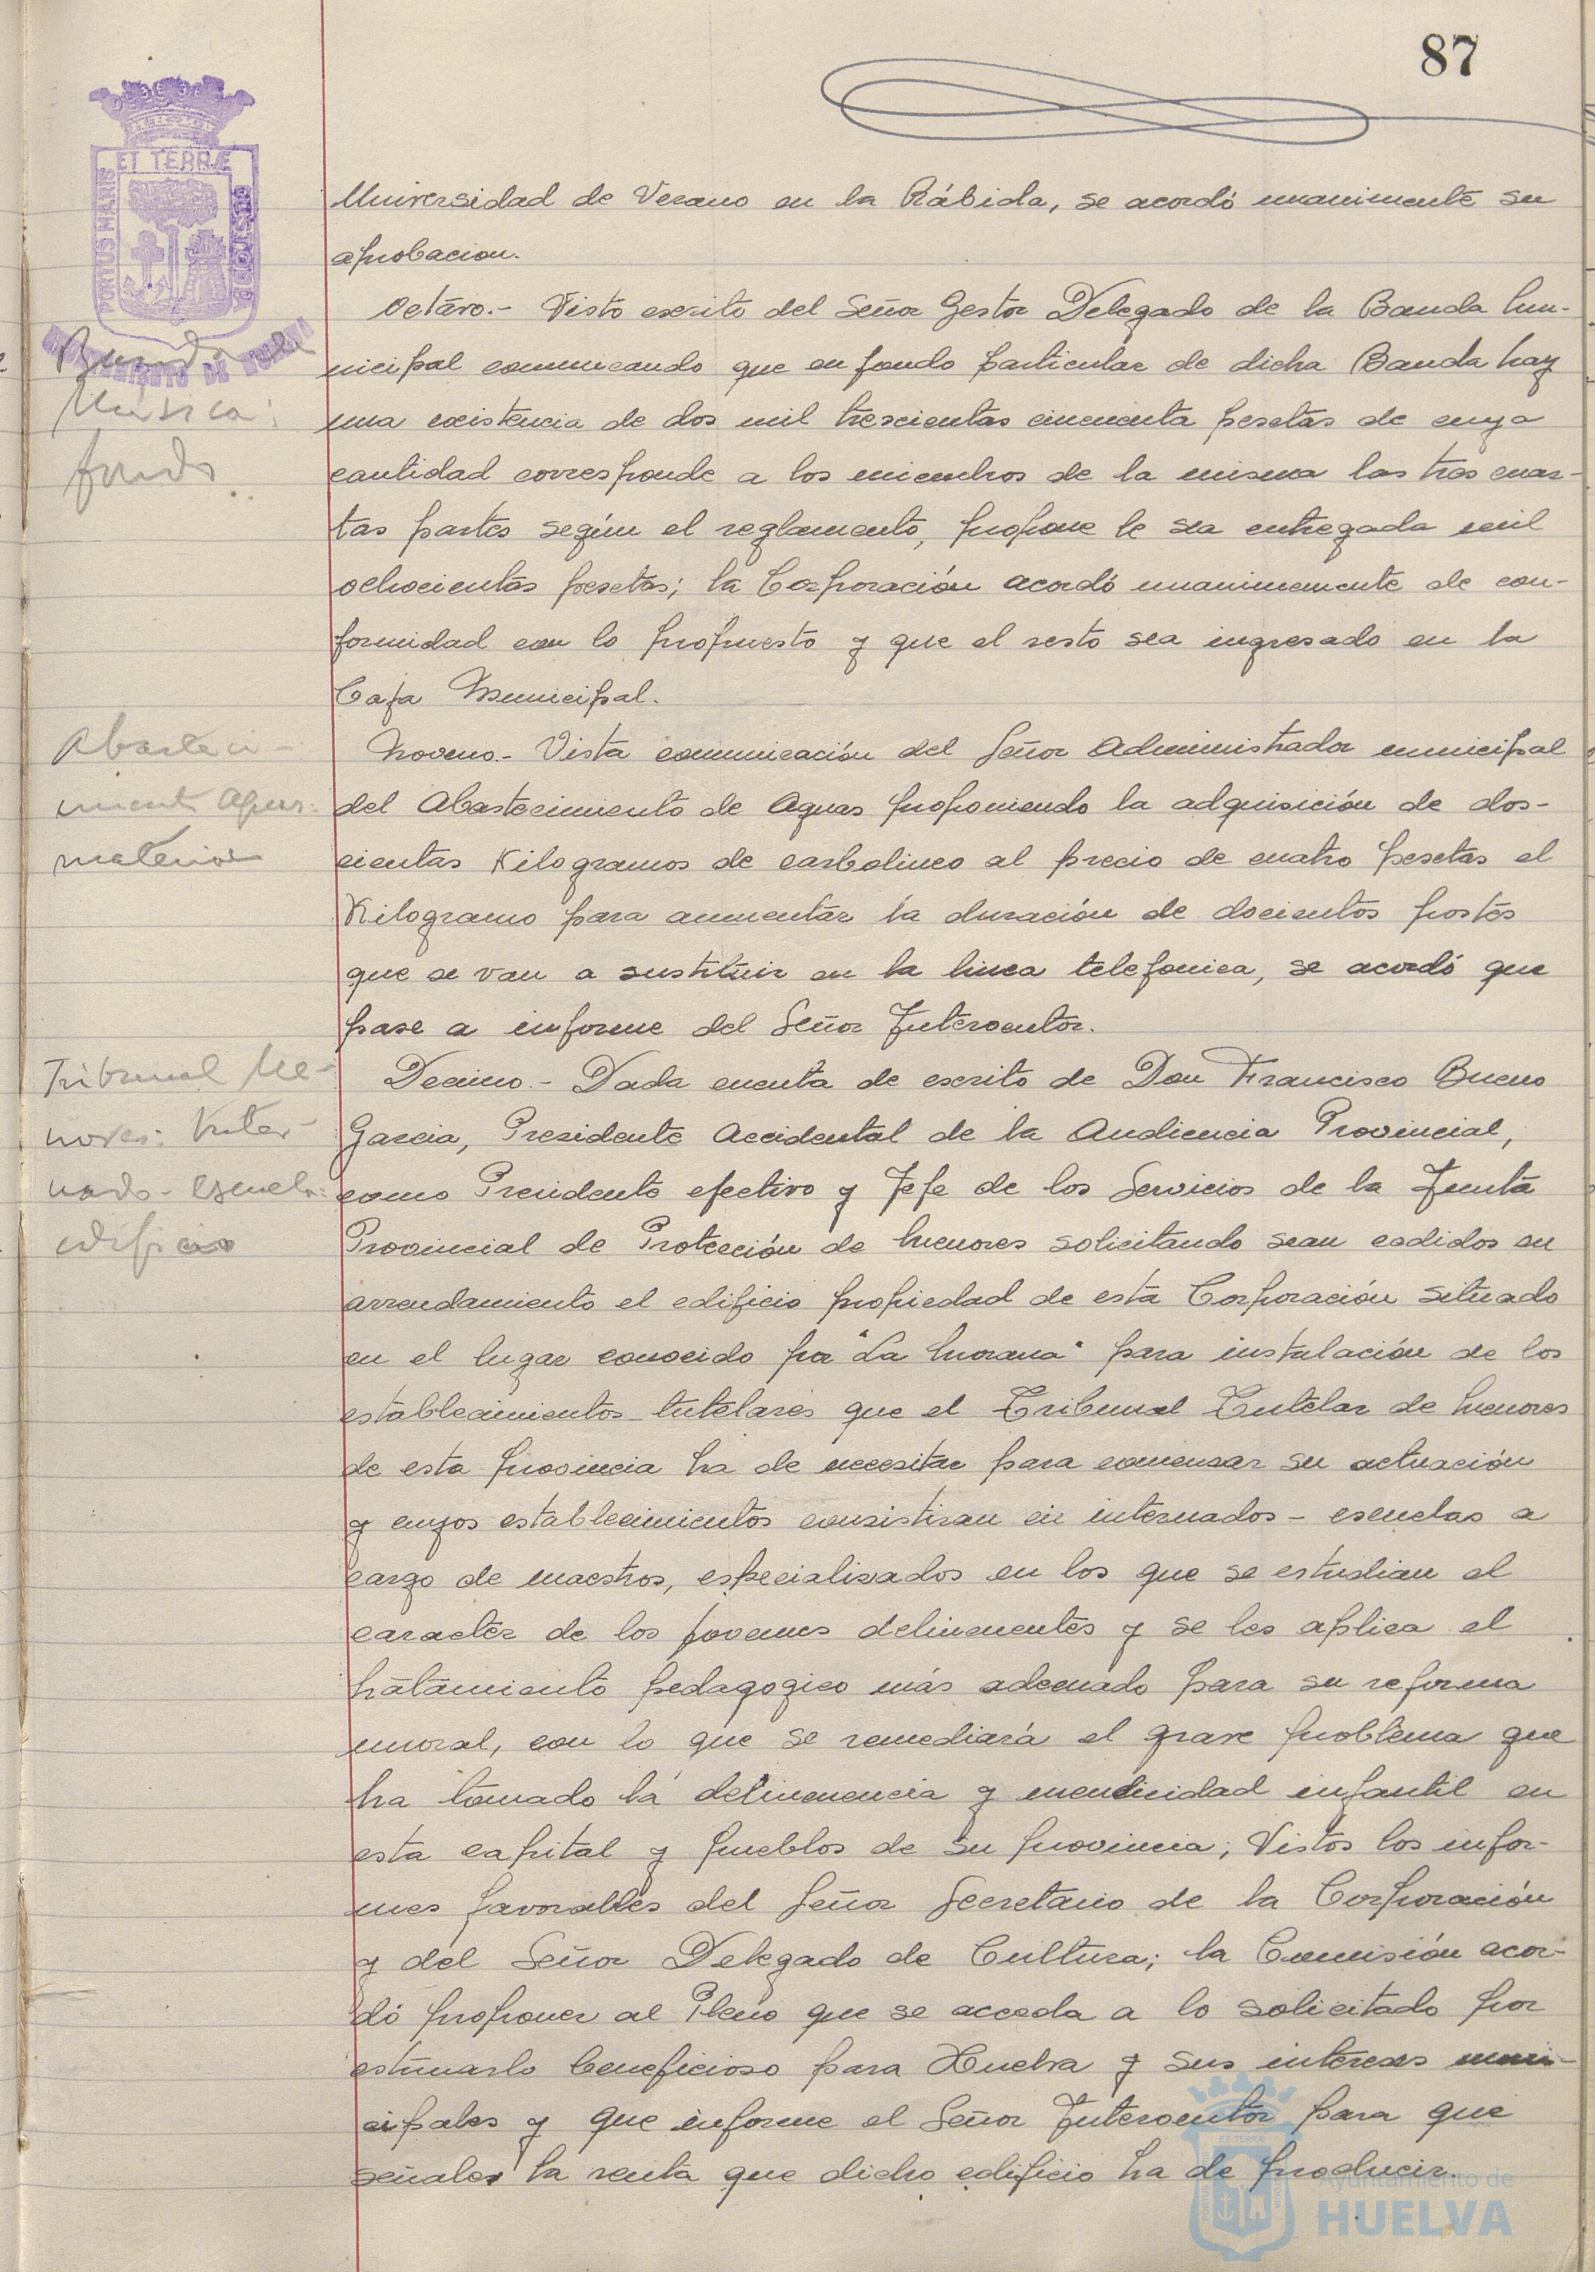 87
ET TERRÆ
PORTUS MARIS
CUSTODIA
AYUNTAMIENTO DE HUELVA
Universidad de Verano en la Rábida, se acordó unanimente su
aprobacion.
Octavo.- Visto escrito del Señor Gestor Delegado de la Banda Mu-
nicipal comunicando que en fondo particular de dicha Banda hay
una existencia de dos mil trescientas cincuenta pesetas de cuya
cantidad corresponde a los miembros de la misma las tres cuar-
tas partes según el reglamento, propone le sea entregada mil
ochocientas pesetas; la Corporación acordó unanimemente de con-
formidad con lo propuesto y que el resto sea ingresado en la
Caja Municipal.
Banda de
Música:
fondo
Noveno.- Vista comunicación del Señor Administrador municipal
del Abastecimiento de Aguas proponiendo la adquisición de dos-
cientas Kilogramos de carbolineo al precio de cuatro pesetas el
Kilogramo para aumentar la duración de docientos postes
que se van a sustituir en la linea telefonica, se acordó que
pase a informe del Señor Interventor.
Abasteci-
miento Aguas:
material
Decimo.- Dada cuenta de escrito de Don Francisco Bueno
Garcia, Presidente Accidental de la Audiencia Provincial,
como Presidente efectivo y Jefe de los Servicios de la Junta
Provincial de Protección de Menores solicitando sean cedidos en
arrendamiento el edificio propiedad de esta Corporación situado
en el lugar conocido por "La Morana" para instalación de los
establecimientos tutelares que el Tribunal Tutelar de Menores
de esta provincia ha de necesitar para comenzar su actuación
y cuyos establecimientos consistiran en internados - escuelas a
cargo de maestros, especializados en los que se estudian el
caracter de los jovenes delincuentes y se les aplica el
tratamiento pedagogico más adecuado para su reforma
moral, con lo que se remediará el grave problema que
ha tomado la delincuencia y mendicidad infantil en
esta capital y pueblos de su provincia; Vistos los infor-
mes favorables del Señor Secretario de la Corporación
y del Señor Delegado de Cultura; la Comisión acor-
dó proponer al Pleno que se acceda a lo solicitado por
estimarlo beneficioso para Huelva y sus intereses muni-
cipales y que informe el Señor Interventor para que
señale la renta que dicho edificio ha de producir.
Tribunal Me-
nores: Inter-
nado - Escuela:
edificio
Ayuntamiento de
HUELVA